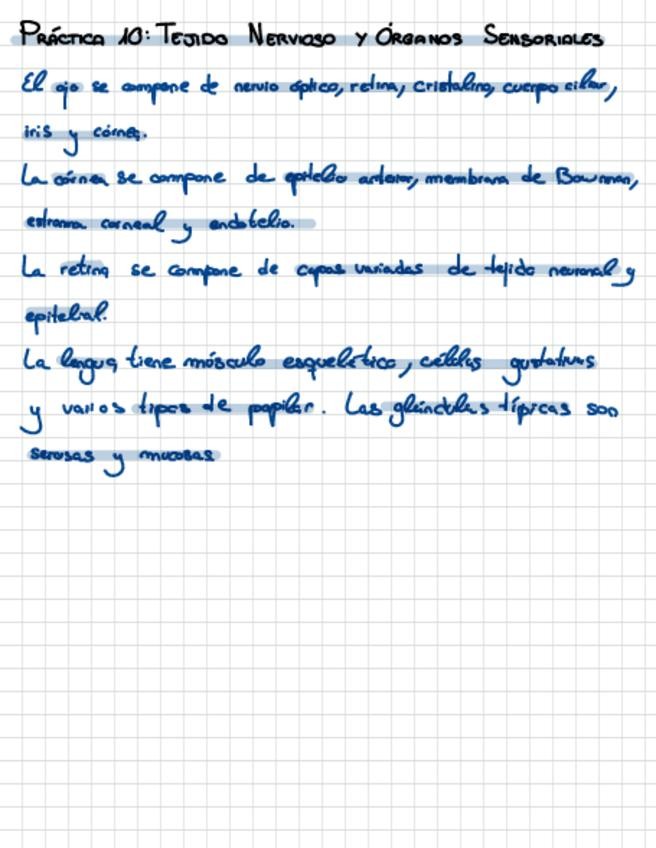 PRÁCTICA 10: TEJIDO NERVIOSO Y ÓRGANOS SENSORIALES
El ojo se compone de nervio óptico, retina, cristalino, cuerpo ciliar,
iris y córnea.
La córnea se compone de epitelio anterior, membrana de Bowman,
estroma corneal y endotelio.
La retina se compone de capas variadas de tejido neuronal y
epitelial.
La lengua tiene músculo esquelético, células gustativas
y varios tipos de papilar. Las glándulas típicas son
serosas y mucosas